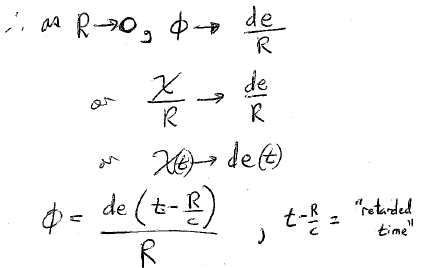 ∴ as R→0, ϕ → de/R
or χ/R → de/R
or χ(t) → de(t)
ϕ = de(t-R/c)/R , t-R/c = "retarded time"